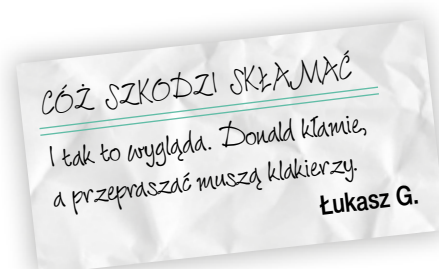 CÓŻ SZKODZI SKŁAMAĆ
I tak to wygląda. Donald kłamie,
a przepraszać muszą klakierzy.
Łukasz G.